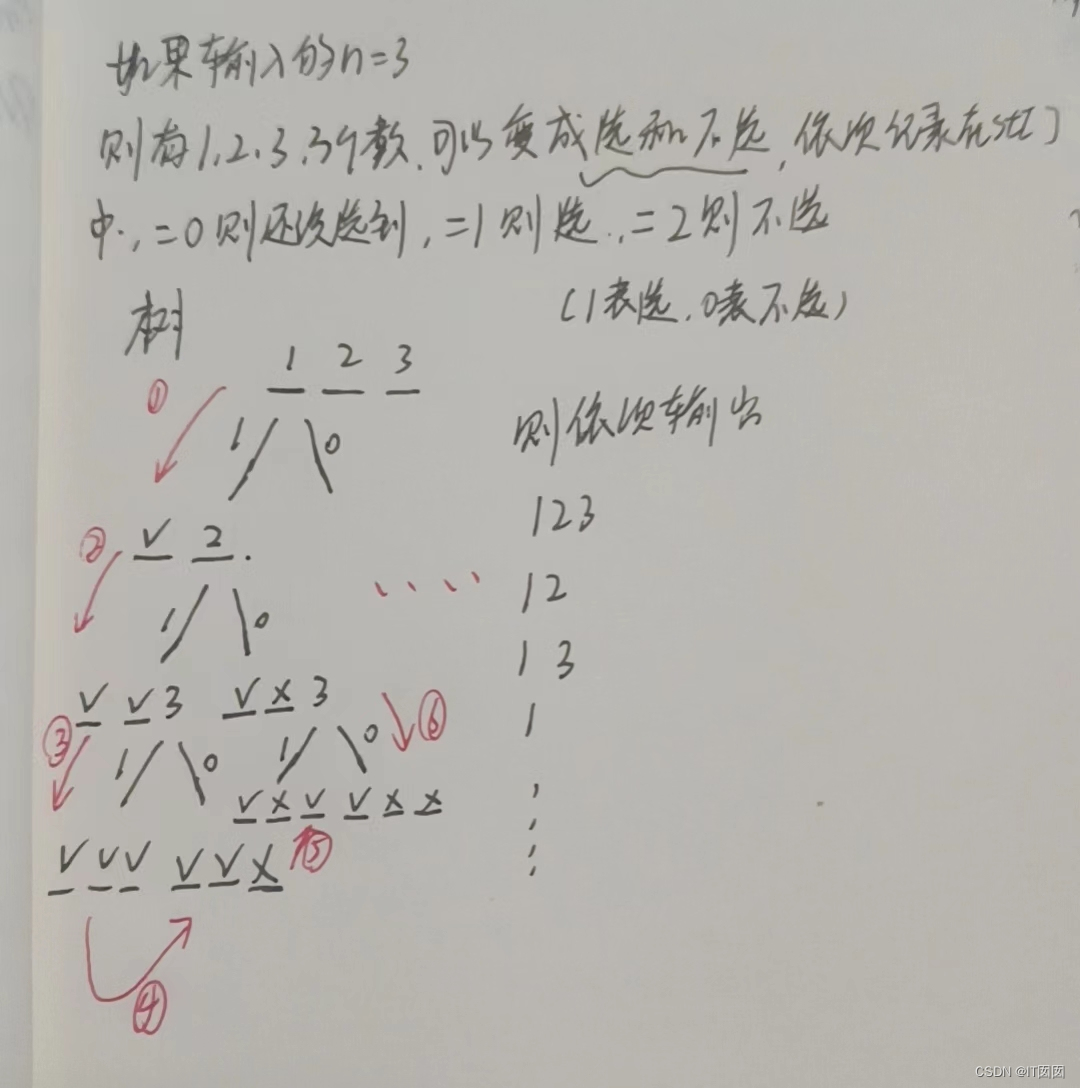 如果输入的n=3
则有1,2,3,3个数,可以变成选和不选,依次记录在st[]
中,=0则还没选到,=1则选,=2则不选
(1表选,0表不选)
树
1 2 3
①
1 0
则依次输出
② ✓ 2
123
12
1 0
1 3
✓ ✓ 3 ✓ x 3
③ ⑥
1
1 0 1 0
✓ x ✓ ✓ x x
✓ ✓ ✓ ✓ ✓ x ⑤
④
CSDN @IT囡囡